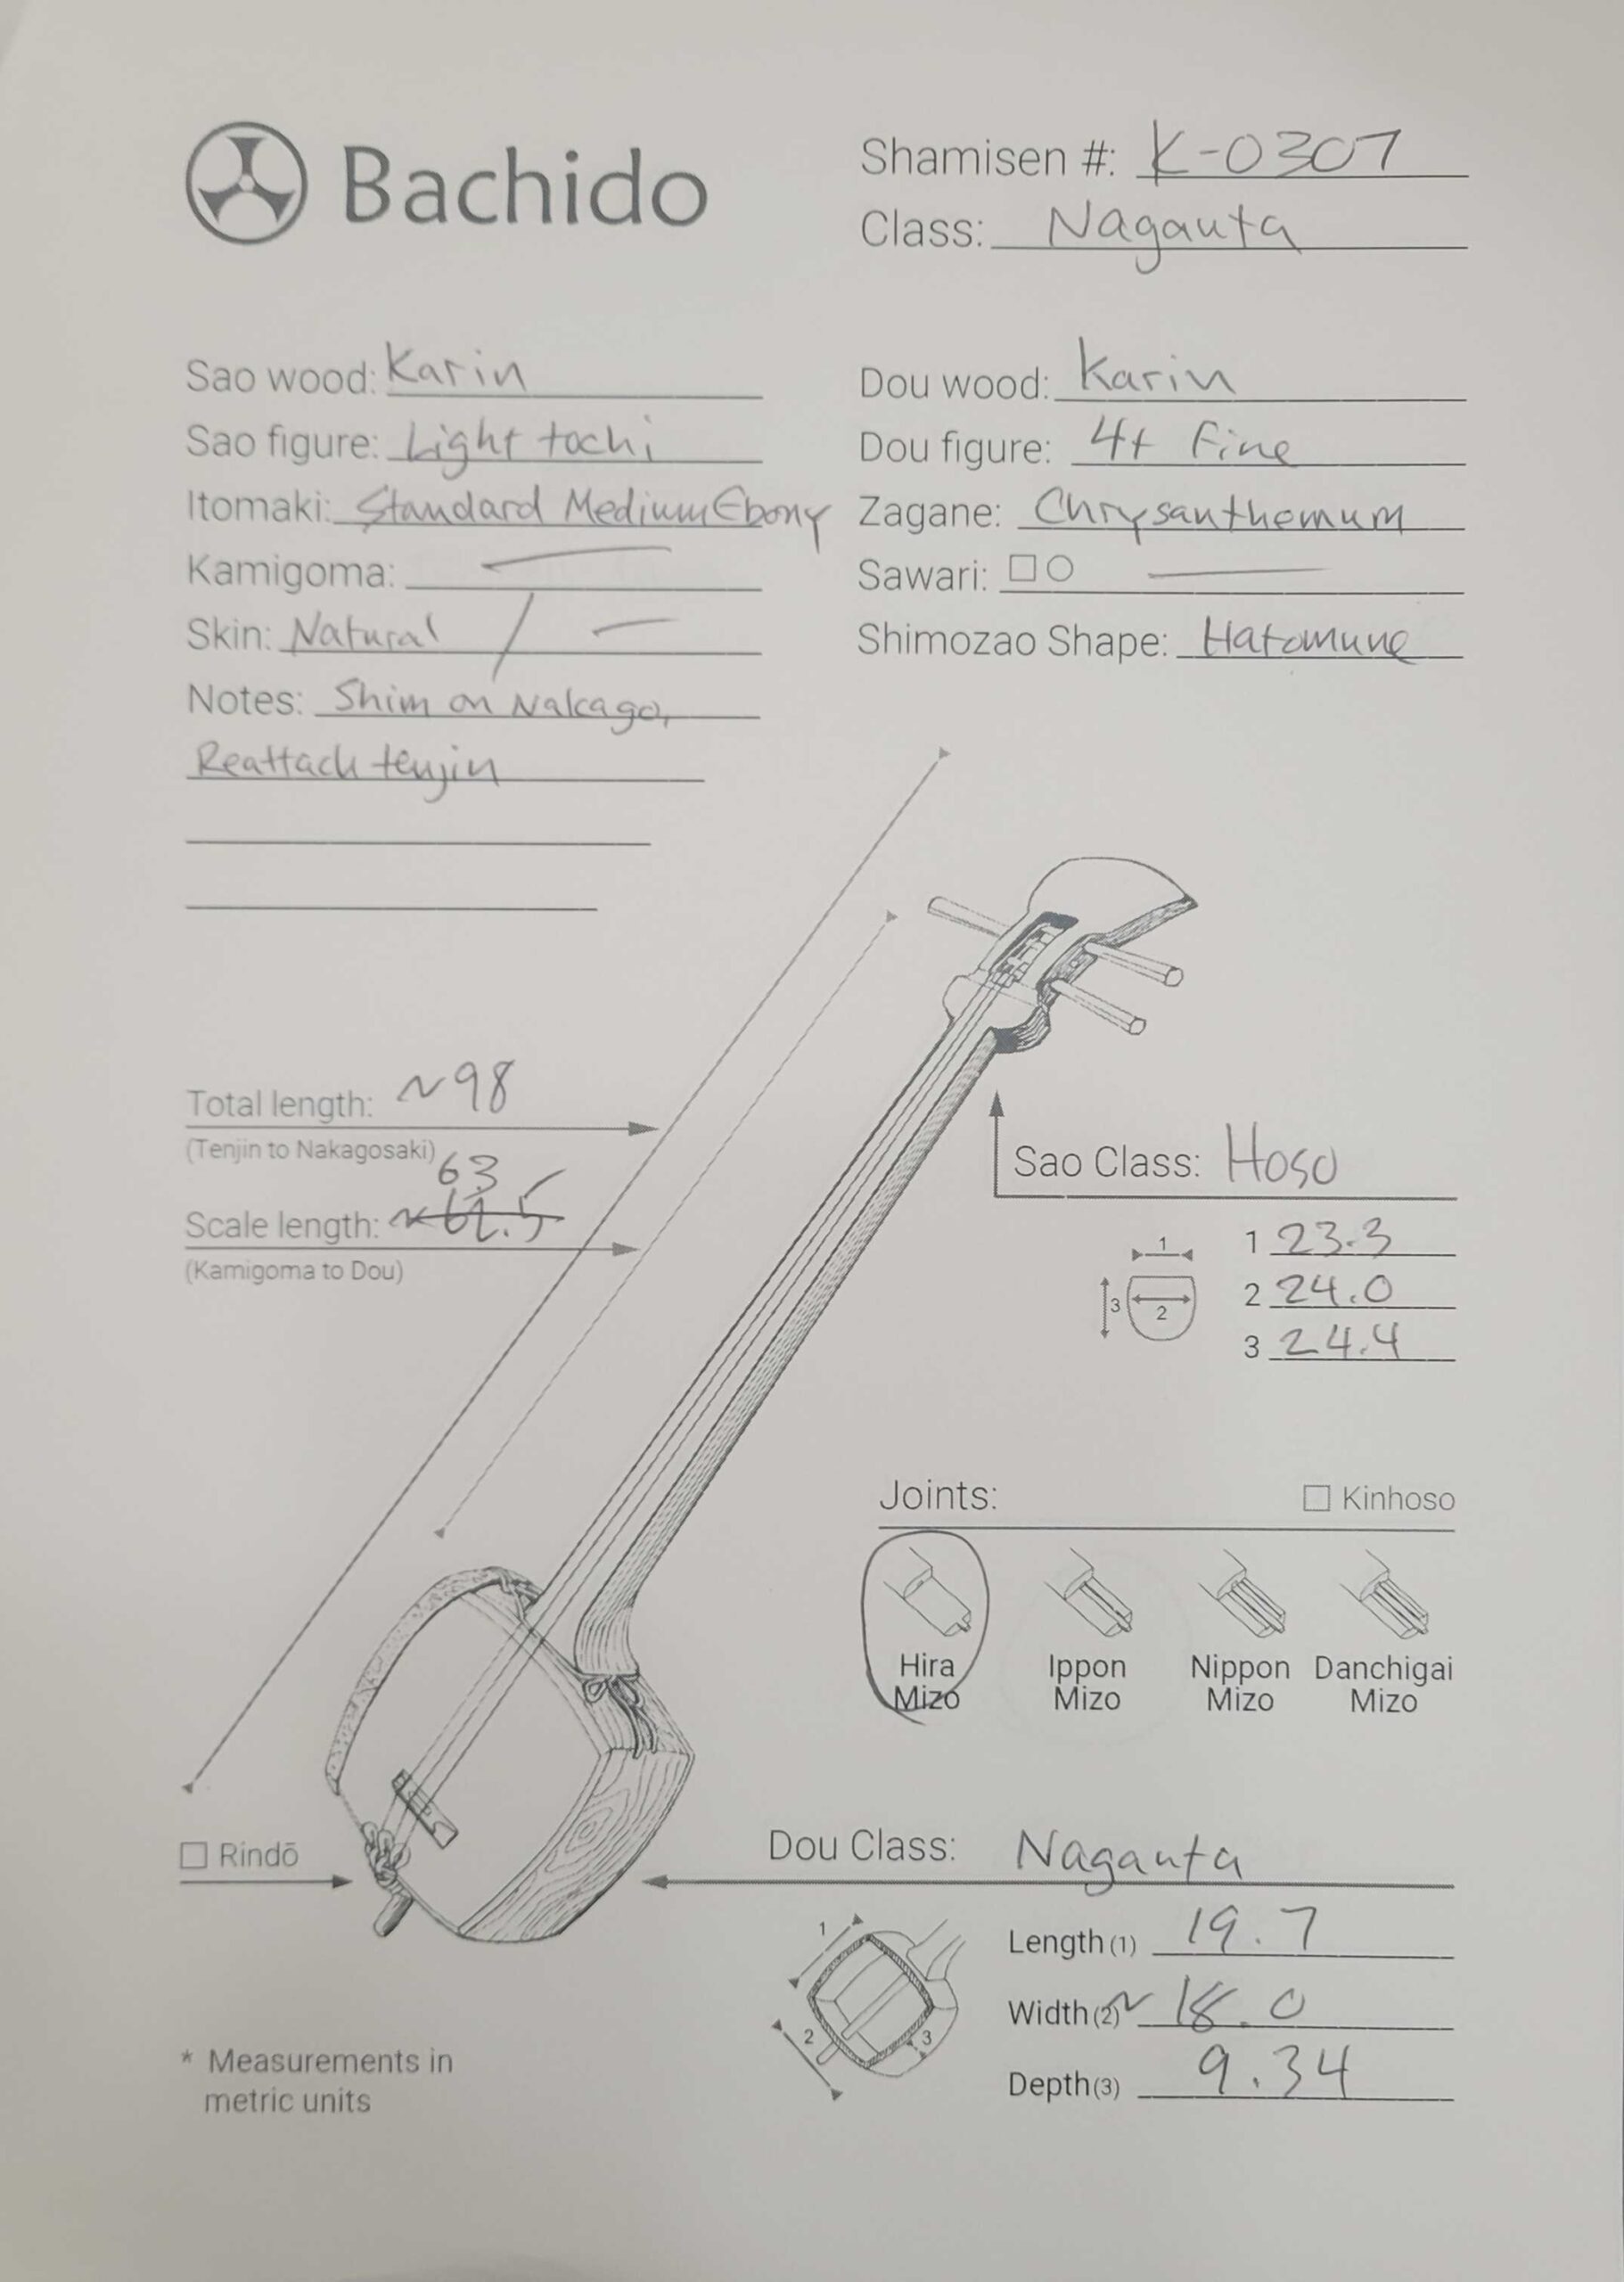 Bachido
Shamisen #: K-0307
Class: Nagauta
Sao wood: Karin
Sao figure: Light tochi
Itomaki: Standard Medium Ebony
Kamigoma: —
Skin: Natural / —
Notes: Shim on Nakago,
Reattach tenjin
Dou wood: Karin
Dou figure: 4+ Fine
Zagane: Chrysanthemum
Sawari: □○ —
Shimozao Shape: Hatomune
Total length: ~98
(Tenjin to Nakagosaki)
63
Scale length: ~62.5
(Kamigoma to Dou)
Sao Class: Hoso
1 23.3
2 24.0
3 24.4
1
3
2
Joints:
□ Kinhoso
Hira Mizo
Ippon Mizo
Nippon Mizo
Danchigai Mizo
□ Rindō
Dou Class: Nagauta
Length (1) 19.7
Width (2) ~18.0
Depth (3) 9.34
1
2
3
* Measurements in
metric units